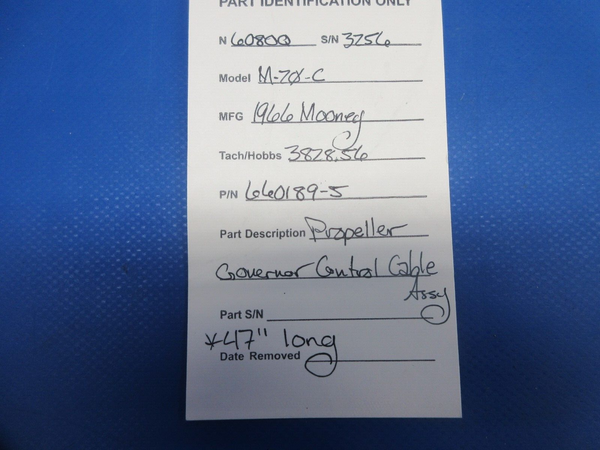 PART IDENTIFICATION ONLY
N 6080Q S/N 3256
Model M-20-C
MFG 1966 Mooney
Tach/Hobbs 3828.56
P/N 660189-5
Part Description Propeller
Governor Control Cable
Assy
Part S/N
*47" long
Date Removed